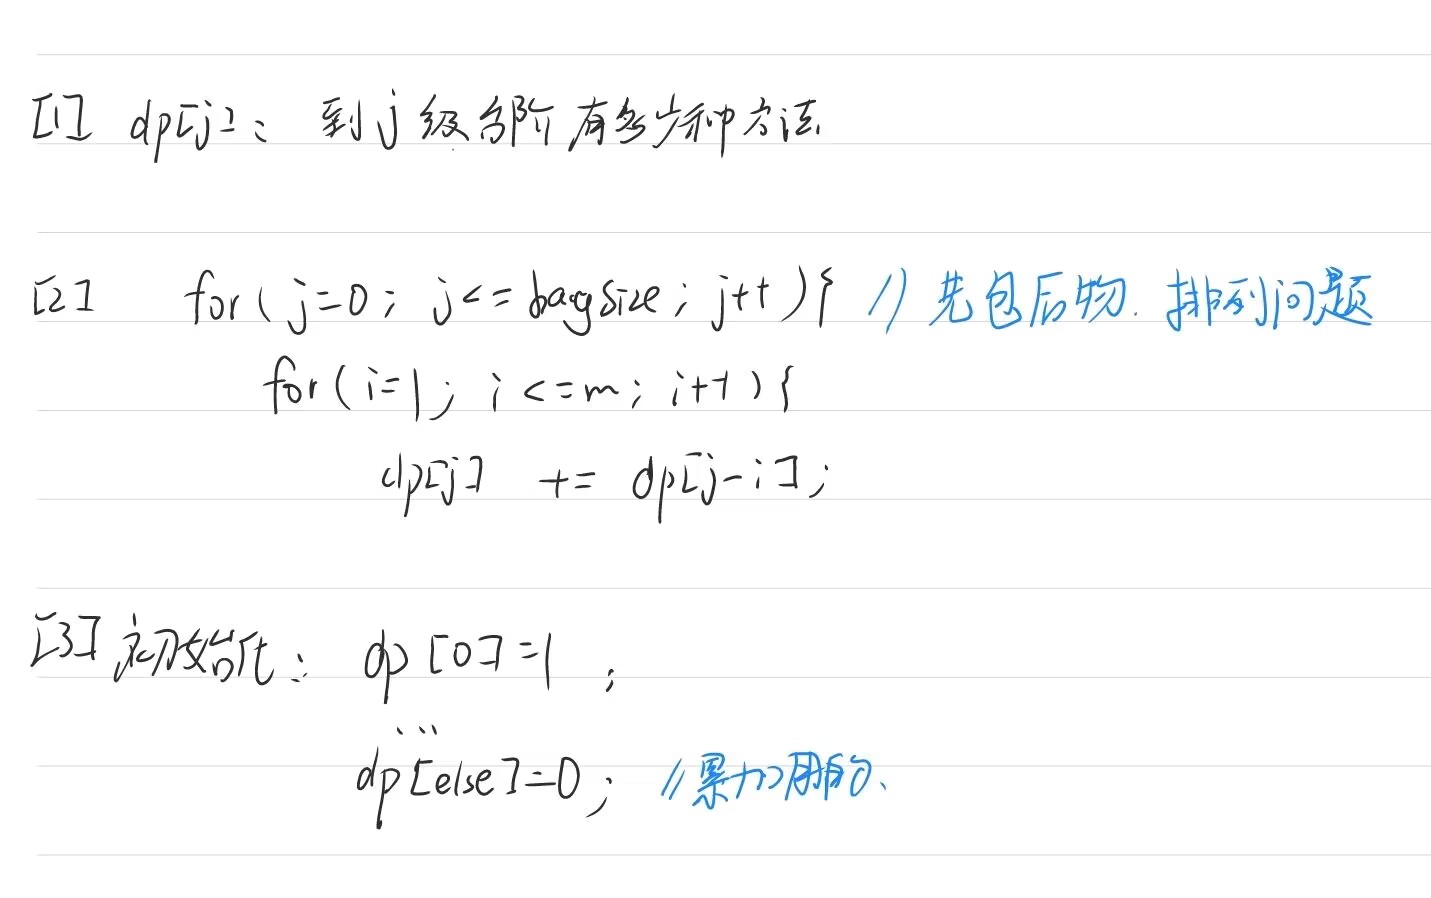 [1] dp[j]: 到j级台阶有多少种方法
[2] for(j=0; j<=bagsize; j++){ //先包后物. 排列问题
for(i=1; i<=m; i++){
dp[j] += dp[j-i];
[3] 初始化: dp[0]=1;
...
dp[else]=0; //累加用的、